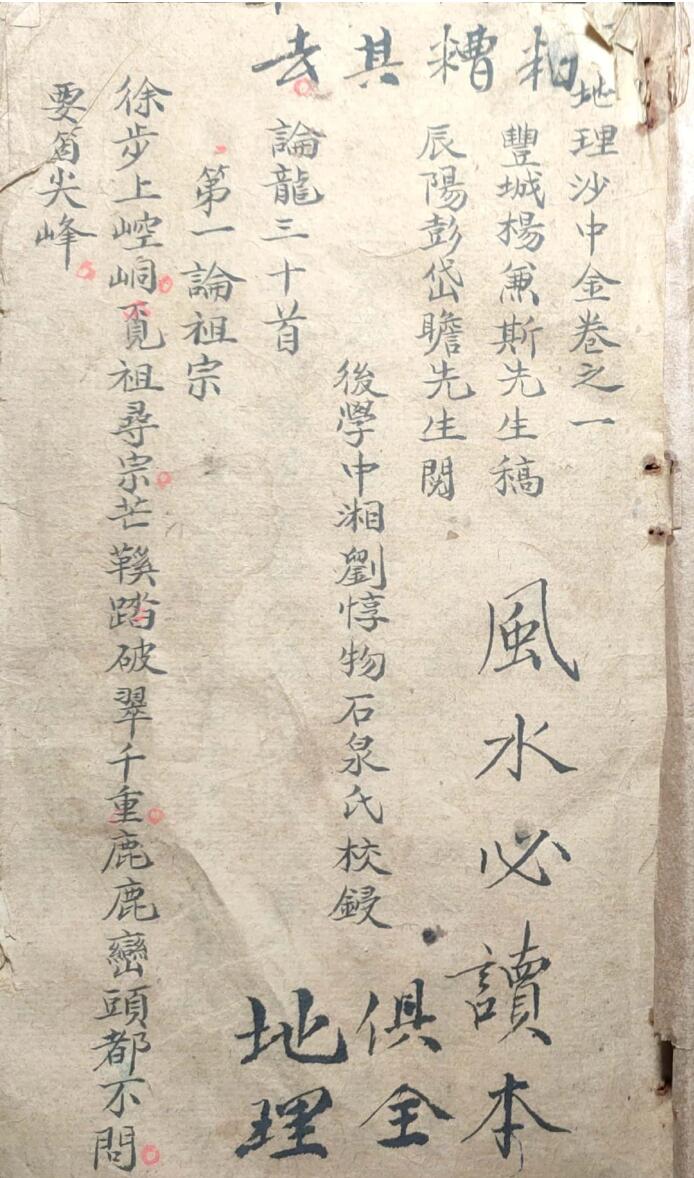 粕糟其去
地理沙中金卷之一
豐城楊兼斯先生稿
辰陽彭岱瞻先生閱
後學中湘劉惇物石泉氏校鋟
論龍三十首
第一論祖宗
徐步上崆峒覓祖尋宗芒鞵踏破翠千重鹿鹿巒頭都不問
要箇尖峰
風水必讀本
俱全
地理